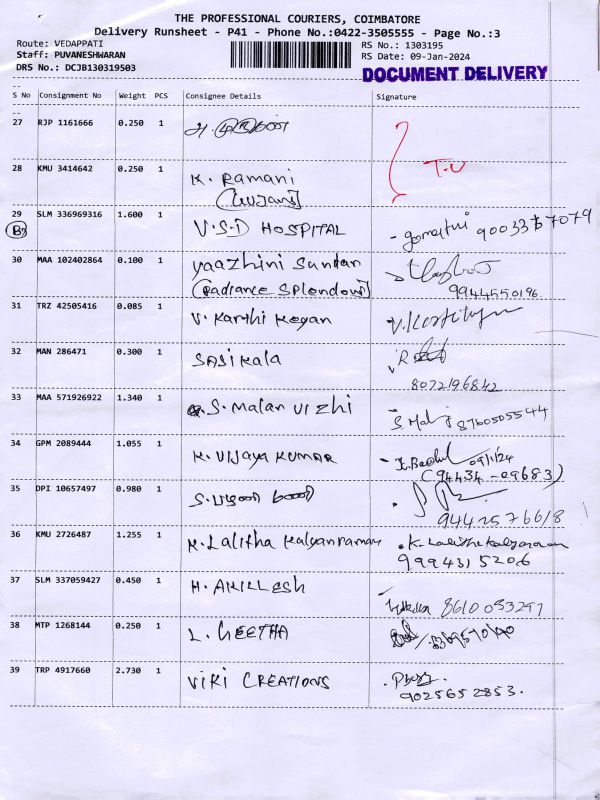 THE PROFESSIONAL COURIERS, COIMBATORE
Delivery Runsheet - P41 - Phone No.:0422-3505555 - Page No.:3
Route: VEDAPPATI
Staff: PUVANESHWARAN
DRS No.: DCJB130319503
RS No.: 1303195
RS Date: 09-Jan-2024
DOCUMENT DELIVERY
S No Consignment No Weight PCS Consignee Details Signature
27 RJP 1161666 0.250 1
28 KMU 3414642 0.250 1 K. Ramani
T.U
29 SLM 336969316 1.600 1 V.S.D HOSPITAL
30 MAA 102402864 0.100 1 yaazhini Sundar
(Radiance Splendour) 9944550196
31 TRZ 42505416 0.085 1 V. Karthi Keyan
32 MAN 286471 0.300 1 SASIKala
8072196842
33 MAA 571926922 1.340 1 S. Malar Vizhi 8760505544
34 GPM 2089444 1.055 1 K. VIJAYA KUMAR 09/1/24
(94434 - 09683)
35 DPI 10657497 0.980 1
9442576618
36 KMU 2726487 1.255 1 K. Lalitha Kalyanraman K. Lalitha Kalyanaraman
9994315206
37 SLM 337059427 0.450 1 H. AKILLESH
38 MTP 1268144 0.250 1 L. GEETHA
39 TRP 4917660 2.730 1 VIKI CREATIONS
9025652853.